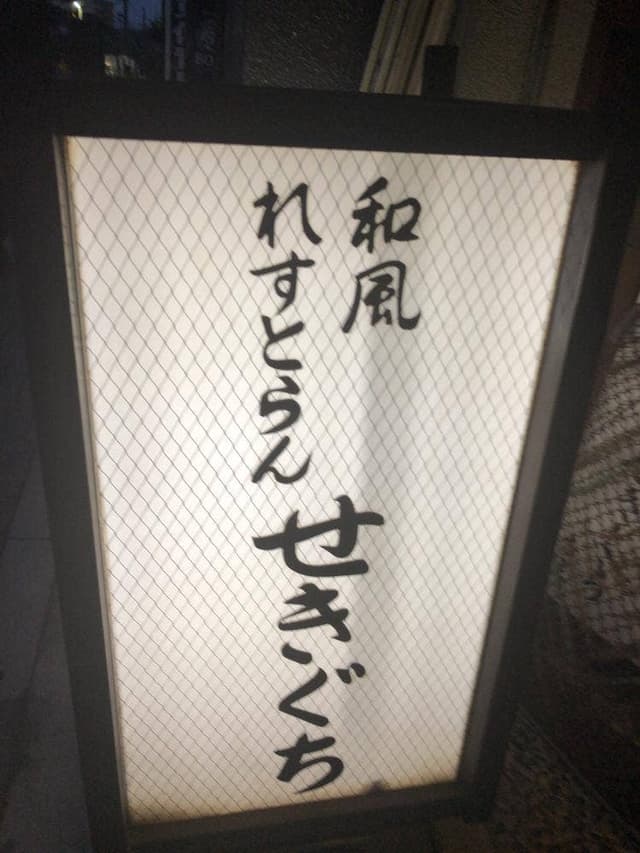 和風
れすとらん
せきぐち